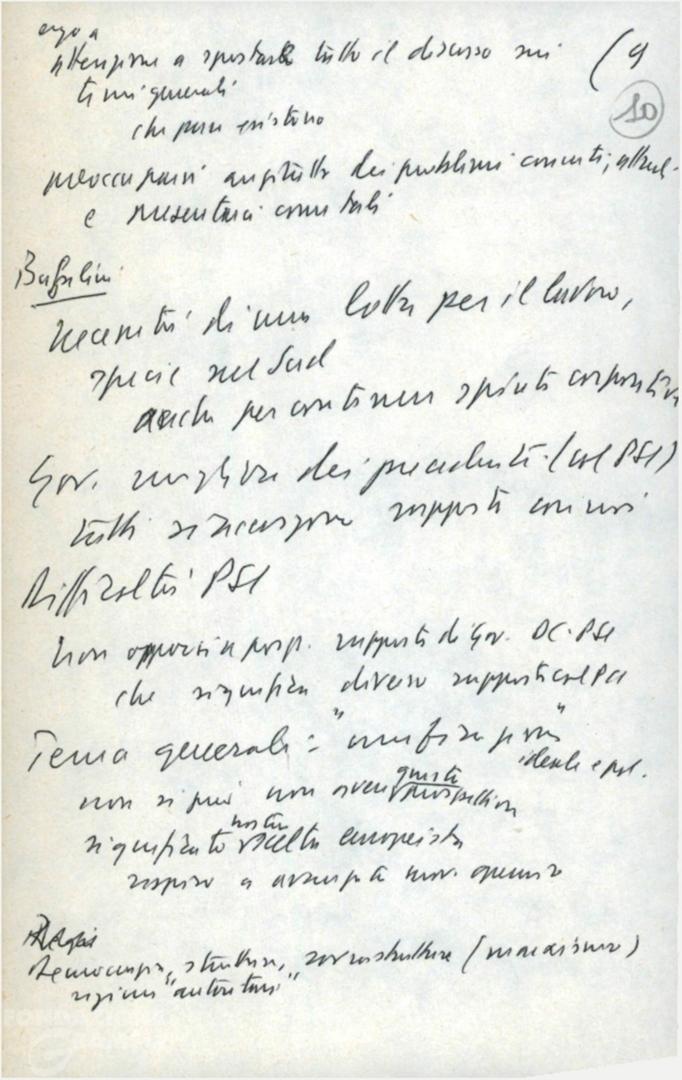 ergo a
attenzione a spostare tutto il discorso sui (9
temi generali 10
che pure esistono
preoccuparsi anzitutto dei problemi concreti, attuali
e presentarci come tali
Bufalini
Necessità di una lotta per il lavoro,
specie nel Sud
anche per contenere spinte corporative
Gov. migliore dei precedenti (col PSI)
tutti riconoscono rapporti con noi
Difficoltà PSI
Non opporsi a prosp. rapporti di Gov. DC-PSI
che significa diverso rapporto col PCI
Tema generale: "unificazione"
ideale e pol.
non si può non avere questa prospettiva
significato nostra scelta europeista
rispetto a avanzata mov. operaio
democrazia, struttura, sovrastruttura (marxismo)
regimi "autoritari"